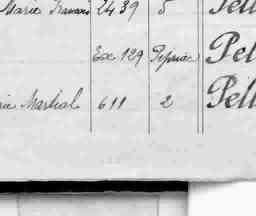 Marie Francois 2439 5 Pell
Exe 129 Pipriac Pel
rie Martial 611 2 Pell